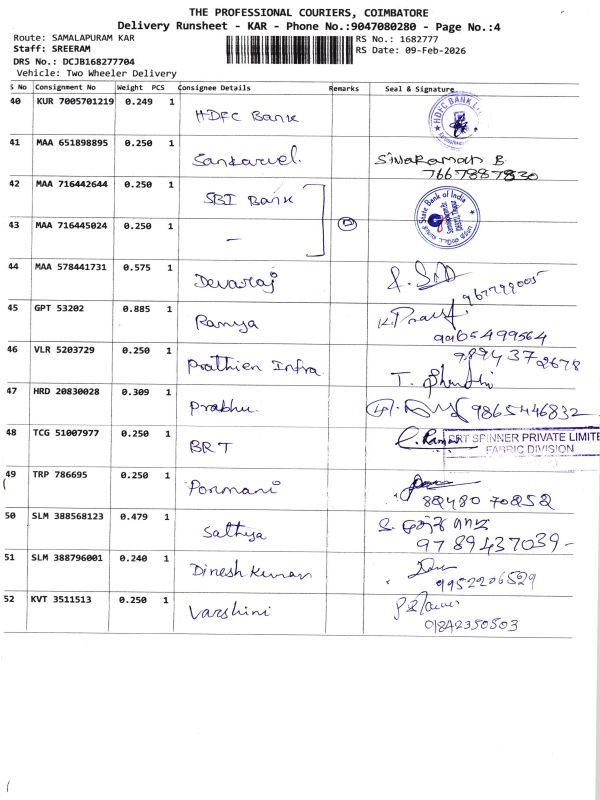 THE PROFESSIONAL COURIERS, COIMBATORE
Delivery Runsheet - KAR - Phone No.:9047080280 - Page No.:4
Route: SAMALAPURAM KAR
RS No.: 1682777
Staff: SREERAM
RS Date: 09-Feb-2026
DRS No.: DCJB168277704
Vehicle: Two Wheeler Delivery
S No Consignment No Weight PCS Consignee Details Remarks Seal & Signature
40 KUR 7005701219 0.249 1 HDFC Bank
HDFC BANK
41 MAA 651898895 0.250 1 Sankarvel. Sivaraman B
7667887830
42 MAA 716442644 0.250 1 SBI Bank
State Bank of India
43 MAA 716445024 0.250 1 —
44 MAA 578441731 0.575 1 Devaraj
45 GPT 53202 0.885 1 Ramya
9965499564
46 VLR 5203729 0.250 1 Prathien Infra
9894372678
47 HRD 20830028 0.309 1 Prabhu. 9865446832
48 TCG 51007977 0.250 1 BRT
BRT SPINNER PRIVATE LIMITE
FABRIC DIVISION
49 TRP 786695 0.250 1 Ponmani
82480 70252
50 SLM 388568123 0.479 1 Sathya
9789437039
51 SLM 388796001 0.240 1 Dineshkumar
9952206529
52 KVT 3511513 0.250 1 Varshini